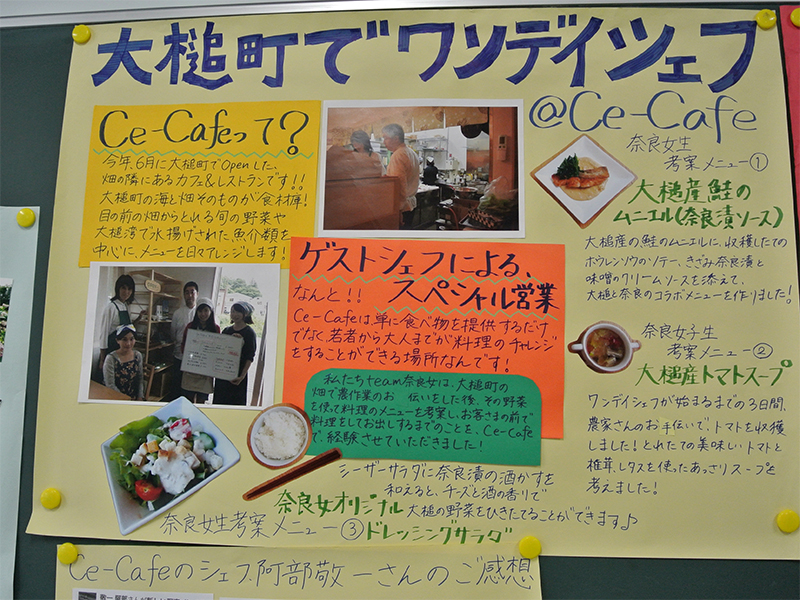 大槌町でワンデイシェフ
@Ce-Cafe
Ce-Cafeって?
今年、6月に大槌町でOpenした、
畑の隣にあるカフェ&レストランです!!
大槌町の海と畑そのものが食材庫!
目の前の畑からとれる旬の野菜や
大槌湾で水揚げされた魚介類を
中心に、メニューを日々アレンジします!
奈良女生
考案メニュー①
大槌産鮭の
ムニエル(奈良漬ソース)
大槌産の鮭のムニエルに、収穫したての
ホウレンソウのソテー、きざみ奈良漬と
味噌のクリームソースを添えて、
大槌と奈良のコラボメニューを作りました!
ゲストシェフによる、
スペシャル営業
なんと!!
Ce-Cafeは、単に食べ物を提供するだけ
でなく、若者から大人までが料理のチャレンジ
をすることができる場所なんです!
私たちteam奈良女は、大槌町の
畑で農作業のお 伝いをした後、その野菜
を使って料理のメニューを考案し、お客さまの前で
料理をしてお出しするまでのことを、Ce-Cafe
で、経験させていただきました!
奈良女子生
考案メニュー②
大槌産トマトスープ
ワンデイシェフが始まるまでの3日間、
農家さんのお手伝いで、トマトを収穫
しました!とれたての美味しいトマトと
椎茸、レタスを使ったあっさりスープを
考えました!
シーザーサラダに奈良漬の酒かすを
和えると、チーズと酒の香りで
大槌の野菜をひきたてることができます♪
奈良女オリジナル
奈良女生考案メニュー③ドレッシングサラダ
Ce-Cafeのシェフ、阿部敬一さんのご感想